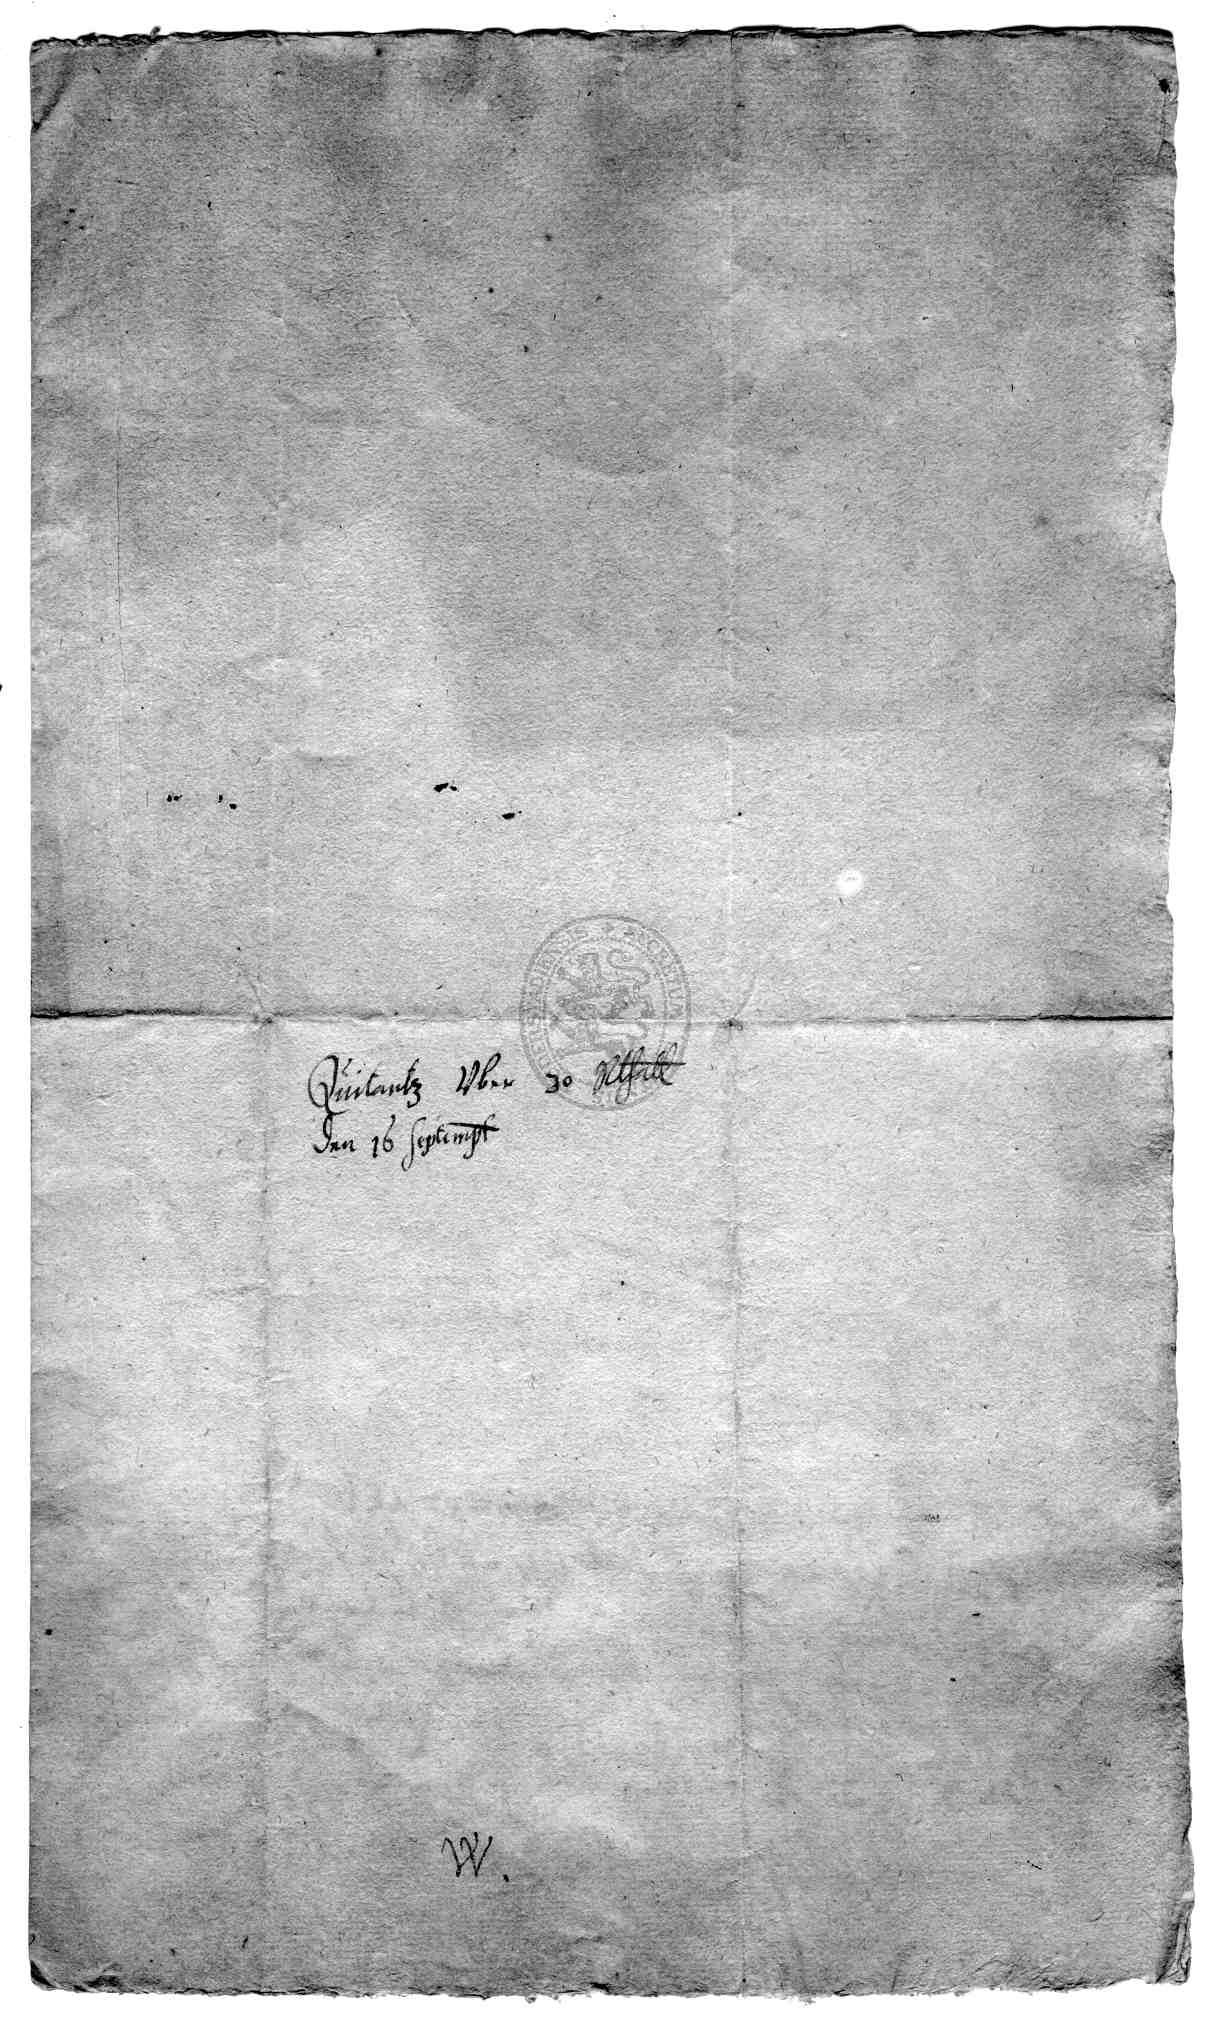 Quitantz Vber 30 Rthall
Den 16 Septemp
W.